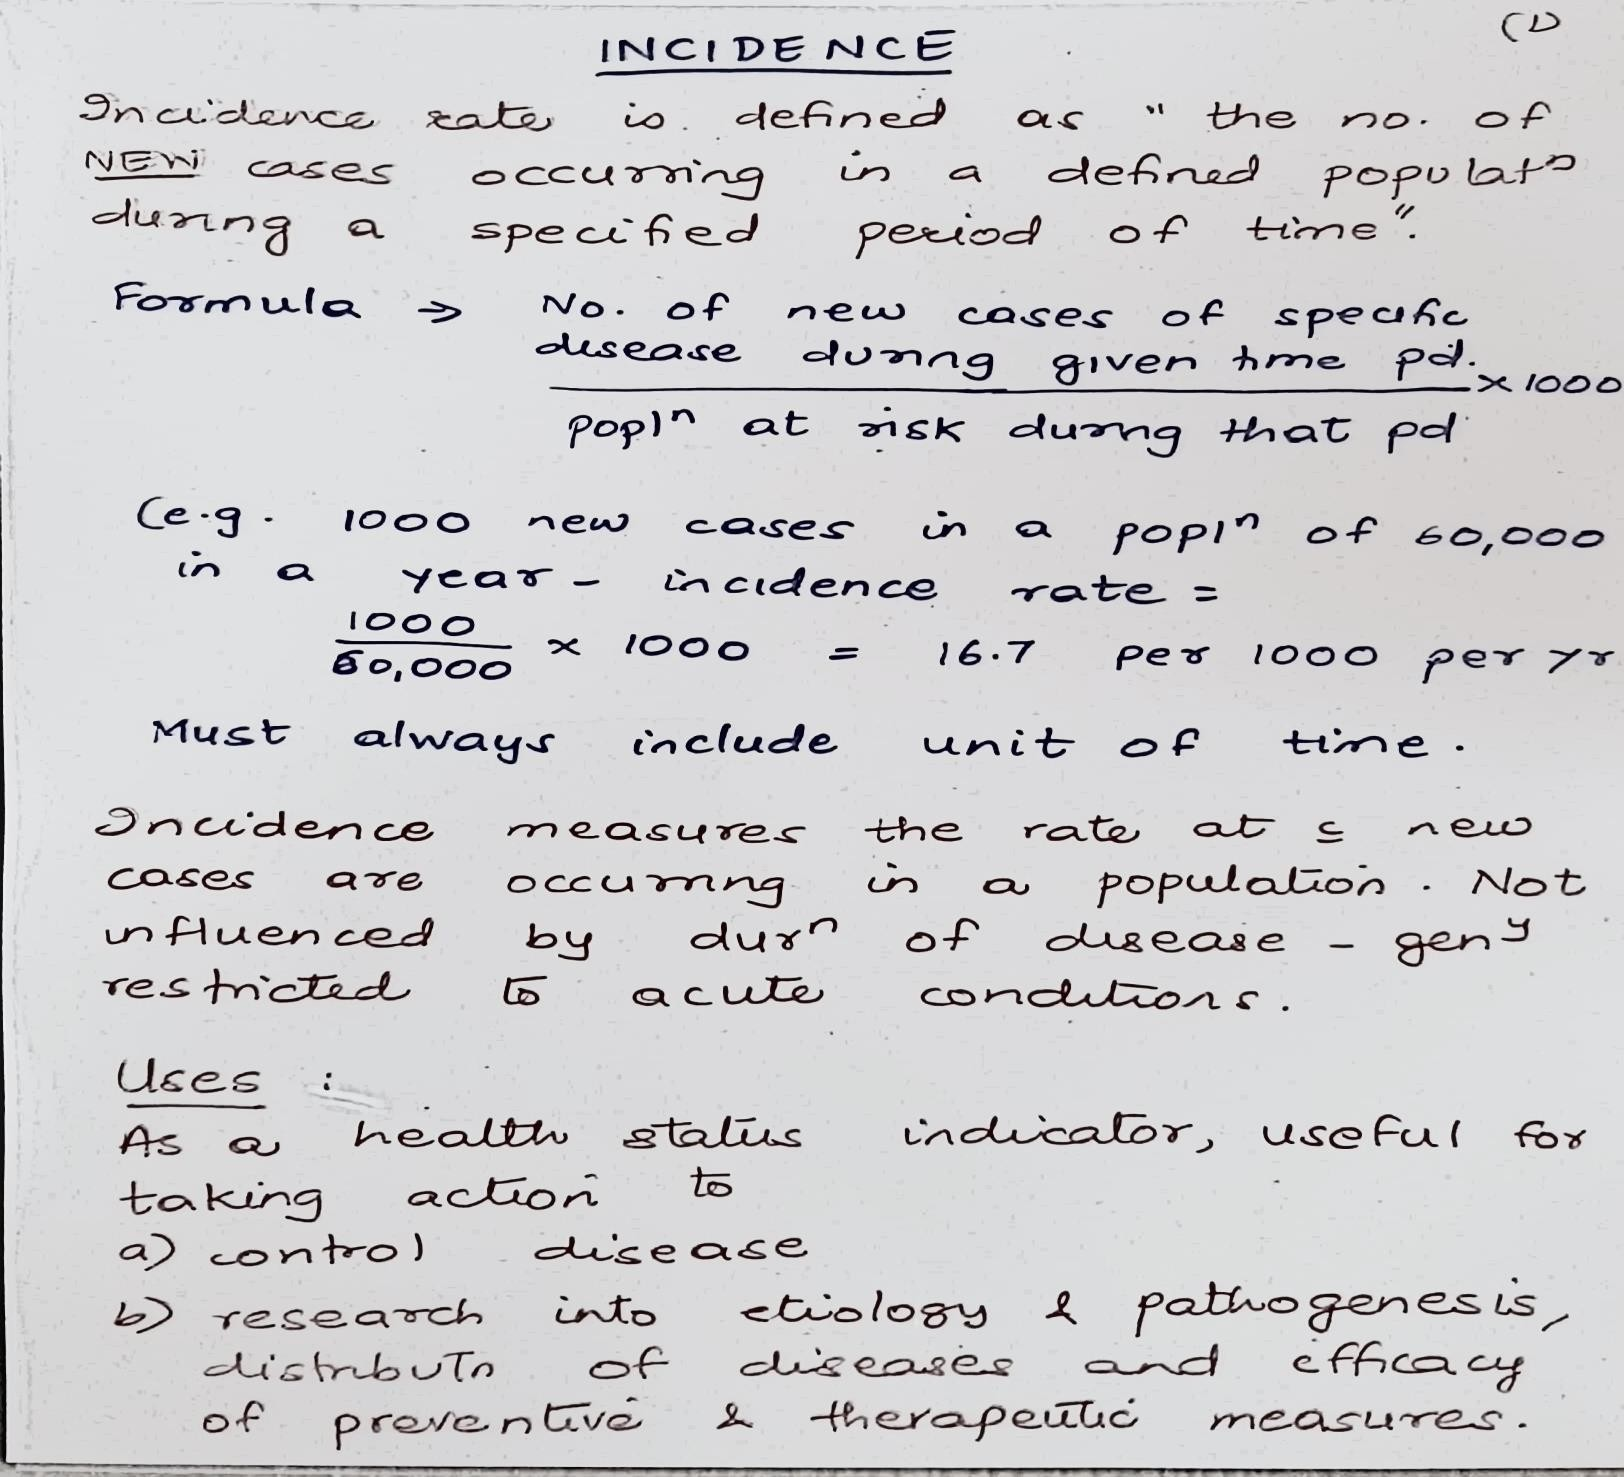 (1)
INCIDENCE
Incidence rate is defined as "the no. of
NEW cases occurring in a defined populatn
during a specified period of time".
Formula → No. of new cases of specific
disease during given time pd. x 1000
popln at risk during that pd
(e.g. 1000 new cases in a popln of 60,000
in a year - incidence rate =
1000
60,000 x 1000 = 16.7 per 1000 per yr
Must always include unit of time.
Incidence measures the rate at c new
cases are occurring in a population. Not
influenced by durn of disease - geny
restricted to acute conditions.
Uses :
As a health status indicator, useful for
taking action to
a) control disease
b) research into etiology & pathogenesis,
distributn of diseases and efficacy
of preventive & therapeutic measures.